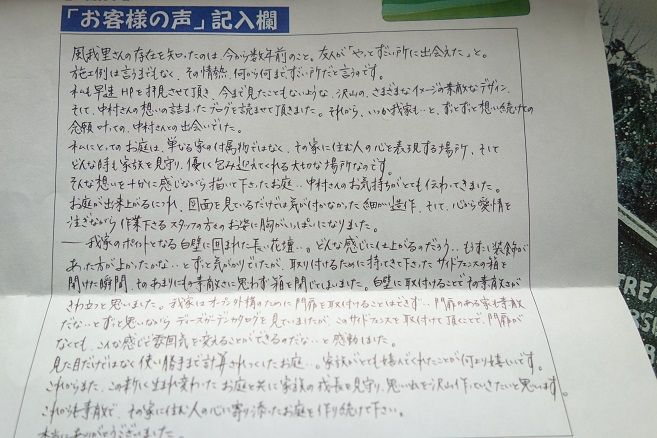 「お客様の声」記入欄
風我里さんの存在を知ったのは、今から数年前のこと。友人が「やっとすごい所に出会えた」と。
施工例は言うまでもなく、その情熱、何から何まですごい所だと言うのです。
私も早速HPを拝見させて頂き、今まで見たこともないような、沢山の、さまざまなイメージの素敵なデザイン、
そして、中村さんの想いの詰まったブログを読ませて頂きました。それから、いつか我家も…と、ずっとずっと想い続けての
念願叶っての、中村さんとの出会いでした。
私にとってのお庭は、単なる家の付属物ではなく、その家に住む人の心を表現する場所、そして
どんな時も家族を見守り、優しく包み迎えてくれる大切な場所なのです。
そんな想いを十分に感じながら描いて下さったお庭…中村さんのお気持ちがとても伝わってきました。
お庭が出来上がるにつれ、図面を見ているだけでは気が付かなかった細かい造作、そして、心から愛情を
注ぎながら作業下さるスタッフの方々のお姿に胸がいっぱいになりました。
――我家のポイントとなる白壁に囲まれた長い花壇…。どんな感じに仕上がるのだろう…もう少し装飾が
あった方が良かったかな…とずっと気がかりでしたが、取り付けるために持ってきて下さったサイドフェンスの箱を
開けた瞬間、そのあまりにもの素敵さに思わず箱を閉じてしまいました。白壁に取付けることでその素敵さが
きわ立つと思いました。我家はオープン外構のために門扉を取付けることはできず…門扉のある家も素敵
だな…とずっと思いながらディーズガーデンカタログを見ていましたが、このサイドフェンスを取付けて頂くことで、門扉が
なくても、こんな感じで雰囲気を変えることができるのだな…と感動しました。
見た目だけではなく使い勝手まで計算されつくしていたお庭…。家族がとても喜んでくれたことが何より嬉しいです。
これからまた、この新しく生まれ変わったお庭と共に家族の成長を見守り、思い出を沢山作っていきたいと思います。
これからも素敵で、その家に住む人の心に寄り添ったお庭を作り続けて下さい。
本当にありがとうございました。